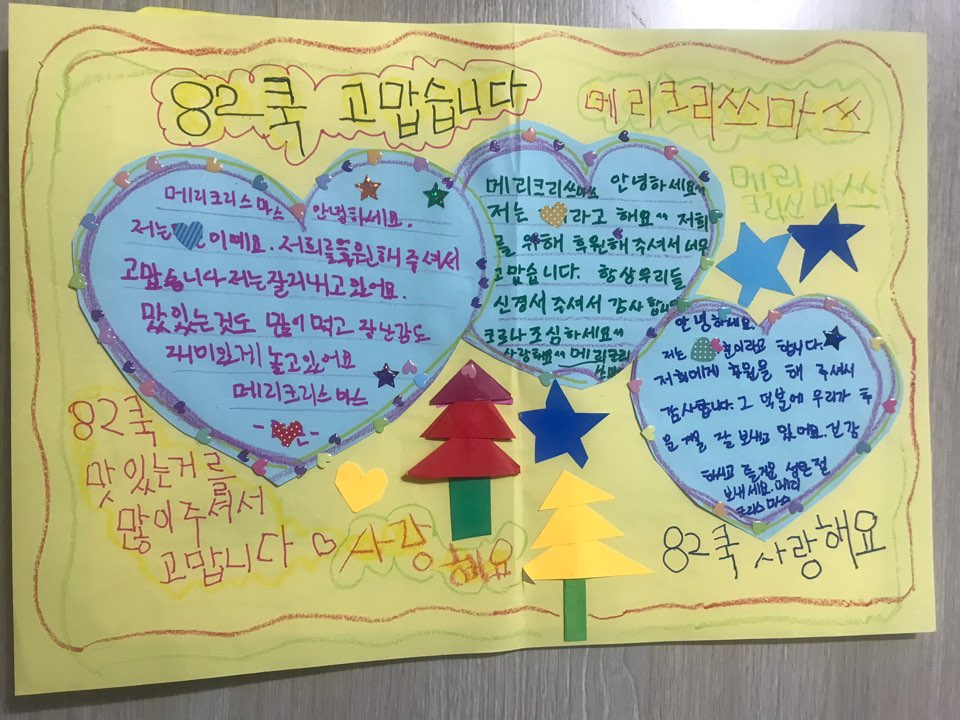 82쿡 고맙습니다
메리크리쓰마쓰
메리크리스마스 안녕하세요.
저는 이예요. 저희를 후원해 주셔서
고맙습니다 저는 잘 지내고 있어요.
맛있는것도 많이 먹고 장난감도
재미있게 놀고있어요
메리크리스마스
메리크리쓰마쓰 안녕하세요~
저는 라고 해요~ 저희
를 위해 후원해 주셔서 너무
고맙습니다. 항상우리들
신경써 주셔서 감사 합니다
코로나 조심하세요~
사랑해요~ 메리크리
메리
마쓰
안녕하세요.
저는 훈이라고 합니다.
저희에게 후원을 해 주셔서
감사합니다. 그 덕분에 우리가 추
운 겨울 잘 보내고 있어요. 건강
하시고 즐거운 성탄절
보내세요. 메리
크리스마스
82쿡
맛있는거를
많이주셔서
고맙니다 ♡
사랑
해요
82쿡 사랑해요